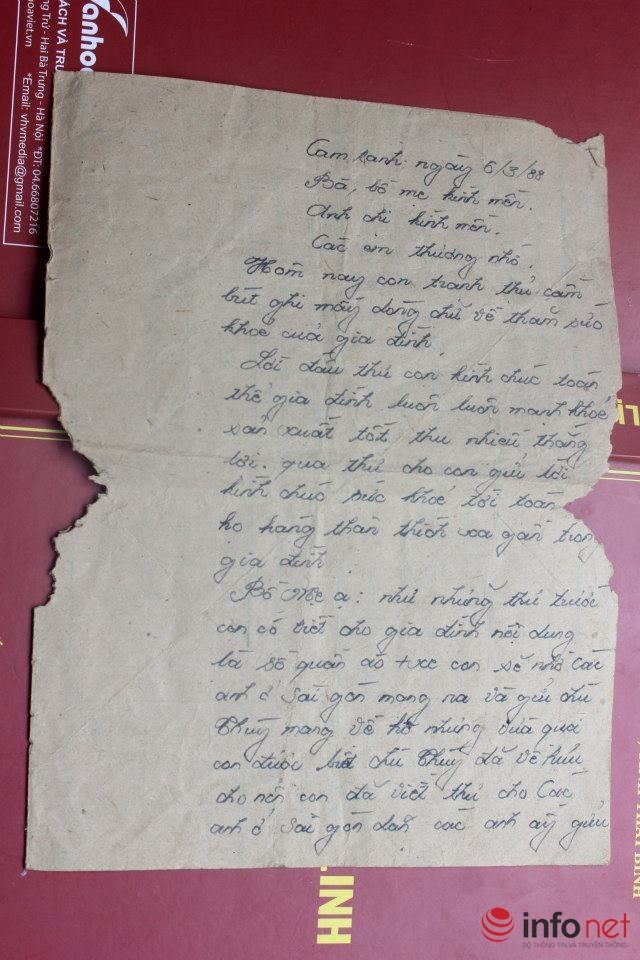 anhoa
ÁCH VÀ TRU
ng Trứ - Hai Bà Trưng - Hà Nội *ĐT: 04.66807216
hoaviet.vn
*Email: vhvmedia@gmail.com
Cam Ranh ngày 6/3/88
Bà, bố mẹ kính mến.
Anh chị kính mến.
Các em thương nhớ.
Hôm nay con tranh thủ cầm
bút ghi mấy dòng chữ về thăm sức
khoẻ của gia đình.
Lời đầu thư con kính chúc toàn
thể gia đình luôn luôn mạnh khoẻ
sản xuất tốt thu nhiều thắng
lợi. qua thư cho con gửi lời
kính chúc sức khoẻ tới toàn
họ hàng thân thích xa gần trong
gia đình
Bố Mẹ ạ: như những thư trước
con có viết cho gia đình nội dung
là số quần áo + xe con sẽ nhờ Các
anh ở Sài gòn mang ra và gửi chú
Thuỷ mang về hộ nhưng vừa qua
con được biết chú Thuỷ đã về hưu
cho nên con đã viết thư cho Các
anh ở Sài gòn dặn các anh ấy gửi
INH
infonet
BỘ THÔNG TIN VÀ TRUYỀN THÔNG